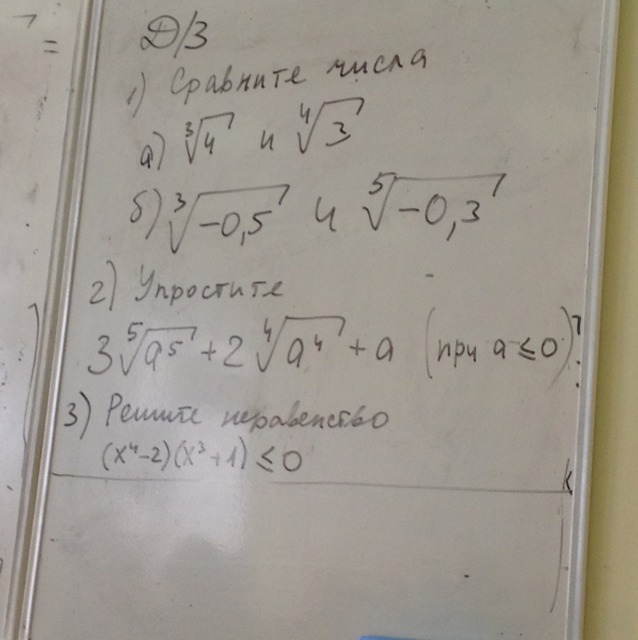 Д/З
1) Сравните числа
а) ∛4 и ∜3
б) ∛-0,5 и ⁵√-0,3
2) Упростите
3⁵√a⁵ + 2∜a⁴ + a (при a ≤ 0)
3) Решите неравенство
(x⁴-2)(x³+1) ≤ 0